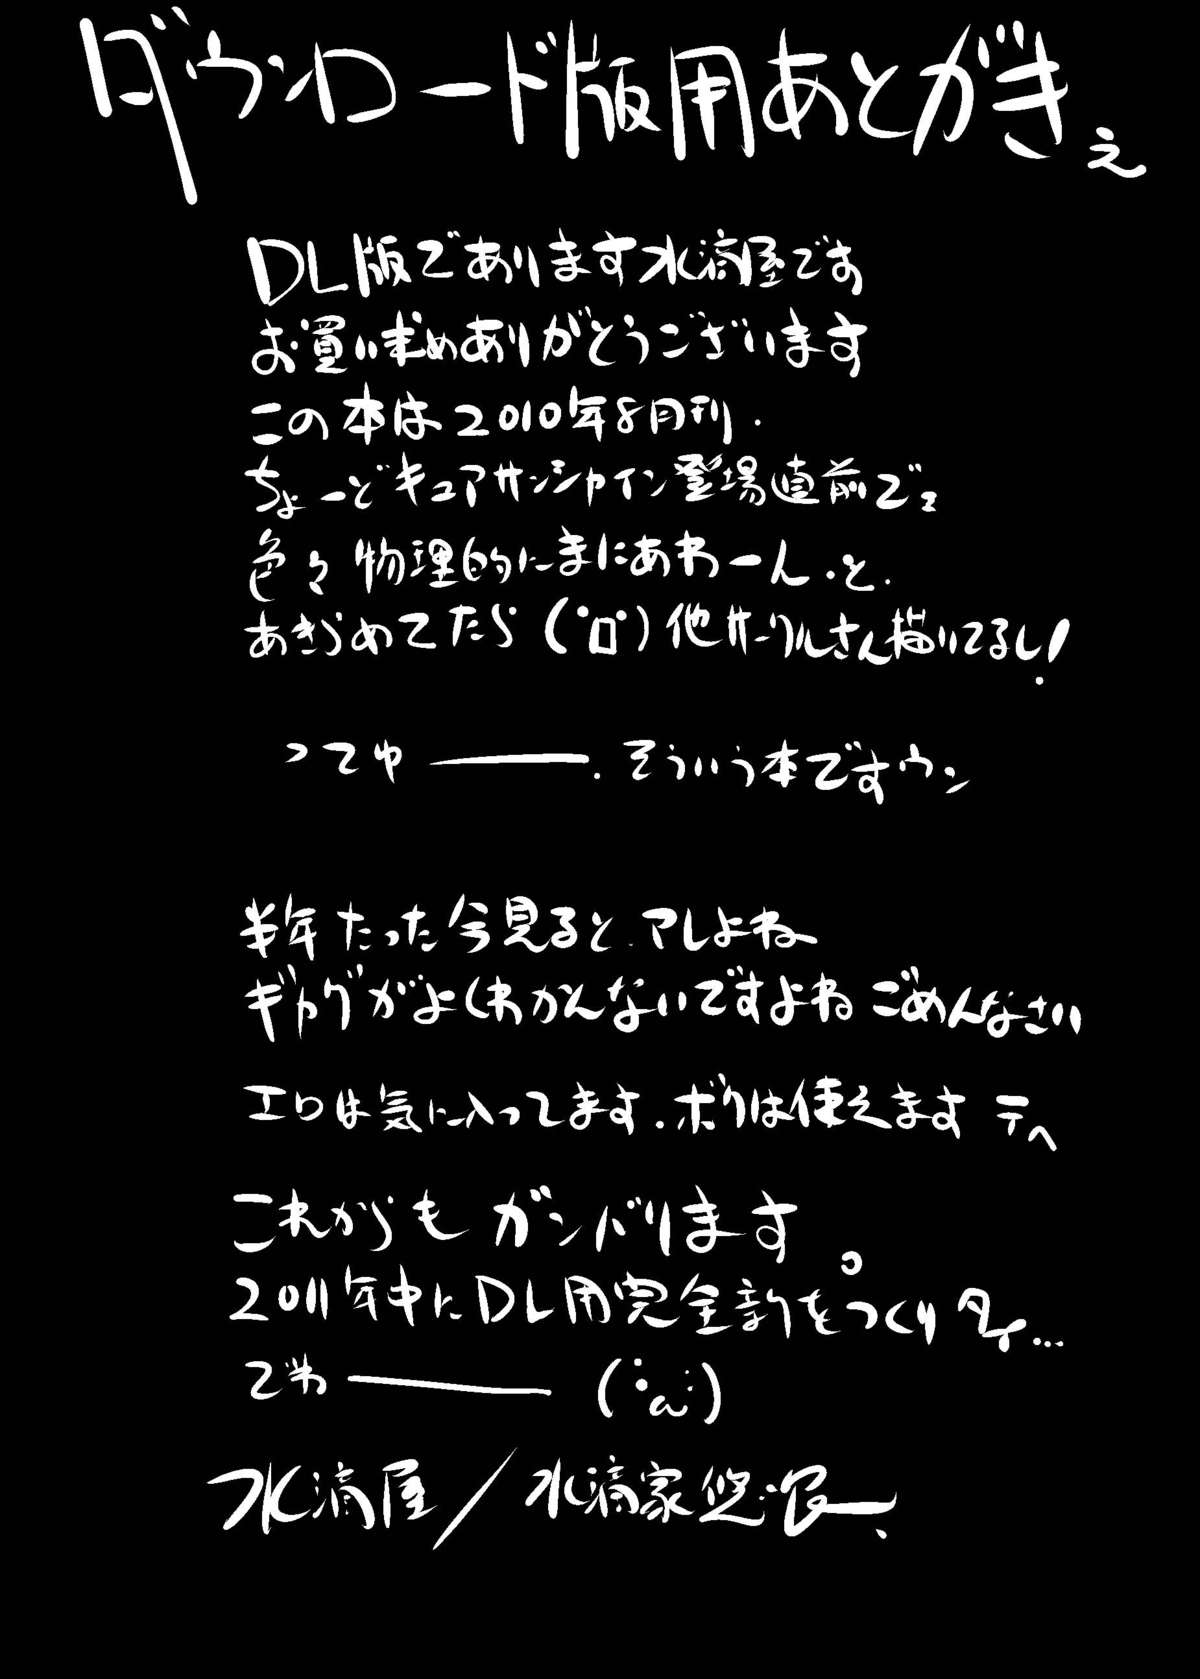 ダウンロード版用あとがきぇ
DL版であります水滴屋です
お買い求めありがとうございます
この本は2010年8月刊.
ちょーどキュアサンシャイン登場直前でェ
色々物理的にまにあわーん.と.
あきらめてたら(゚ロ゚)他サークルさん描いてるし!
ってゆ――.そういう本ですウン
半年たった今見ると.アレよね
ギャグがよくわかんないですよねごめんなさい
エロは気に入ってます.ボクは使えますテヘ
これからもガンバリます。
2011年中にDL用完全新をつくりタイ...
でわ――
水滴屋/水滴家悠